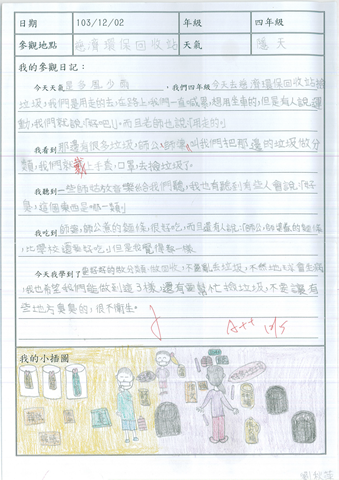 日期 103/12/02 年級 四年級
參觀地點 慈濟環保回收站 天氣 陰天
我的參觀日記：
今天天氣是多雲少雨，我們四年級今天去慈濟環保回收站撿
垃圾，我們是用走的去，在路上我們一直喊累，想用坐車的，但是有人說，運
動，我們就說「好吧！」。而且老師也說「用走的」
我看到那邊有很多垃圾，師公、師婆叫我們把那邊的垃圾做分
類，我們就戴上手套，口罩，去撿垃圾了。
我聽到一些師姑放音樂給我們聽，我也有聽到有些人會說「好
臭，這個東西是哪一類」
我吃到師婆、師公煮的麵條，很好吃，而且還有人說「師公、師婆煮的麵條，
比學校還要好吃」但是我覺得都一樣
今天我學到了要好好的做足分類、做回收，不要亂丟垃圾，不然地球會生病
，我也希望我們能做到這3樣，還有要幫忙撿垃圾，不要讓有
些地方臭臭的，很不衛生。
A++ 12/5
我的小插圖